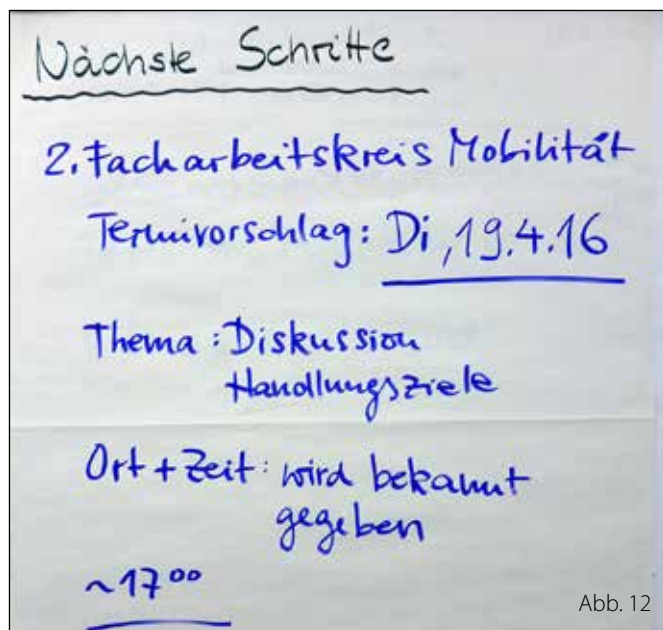 Nächste Schritte
2. Facharbeitskreis Mobilität
Terminvorschlag: Di, 19.4.16
Thema: Diskussion
Handlungsziele
Ort + Zeit: wird bekannt
gegeben
~17⁰⁰
Abb. 12